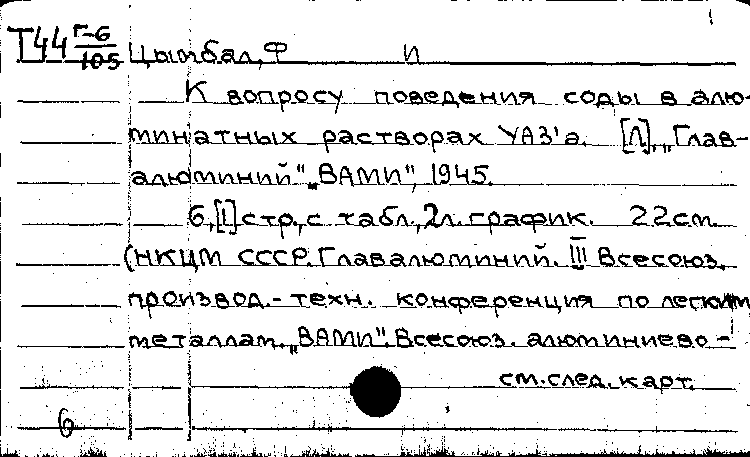 Т44 Г-6/105 Цымбал, Ф И
К вопросу поведения соды в алю-
минатных растворах УАЗ'а. [Л], „Глав-
алюминий" „ВАМИ", 1945.
6,[1] стр., с табл., 2л. график. 22см.
(НКЦМ СССР. Главалюминий. III Всесоюз.
производ.-техн. конференция по легким
металлам. „ВАМИ". Всесоюз. алюминиево-
см. след. карт.
6